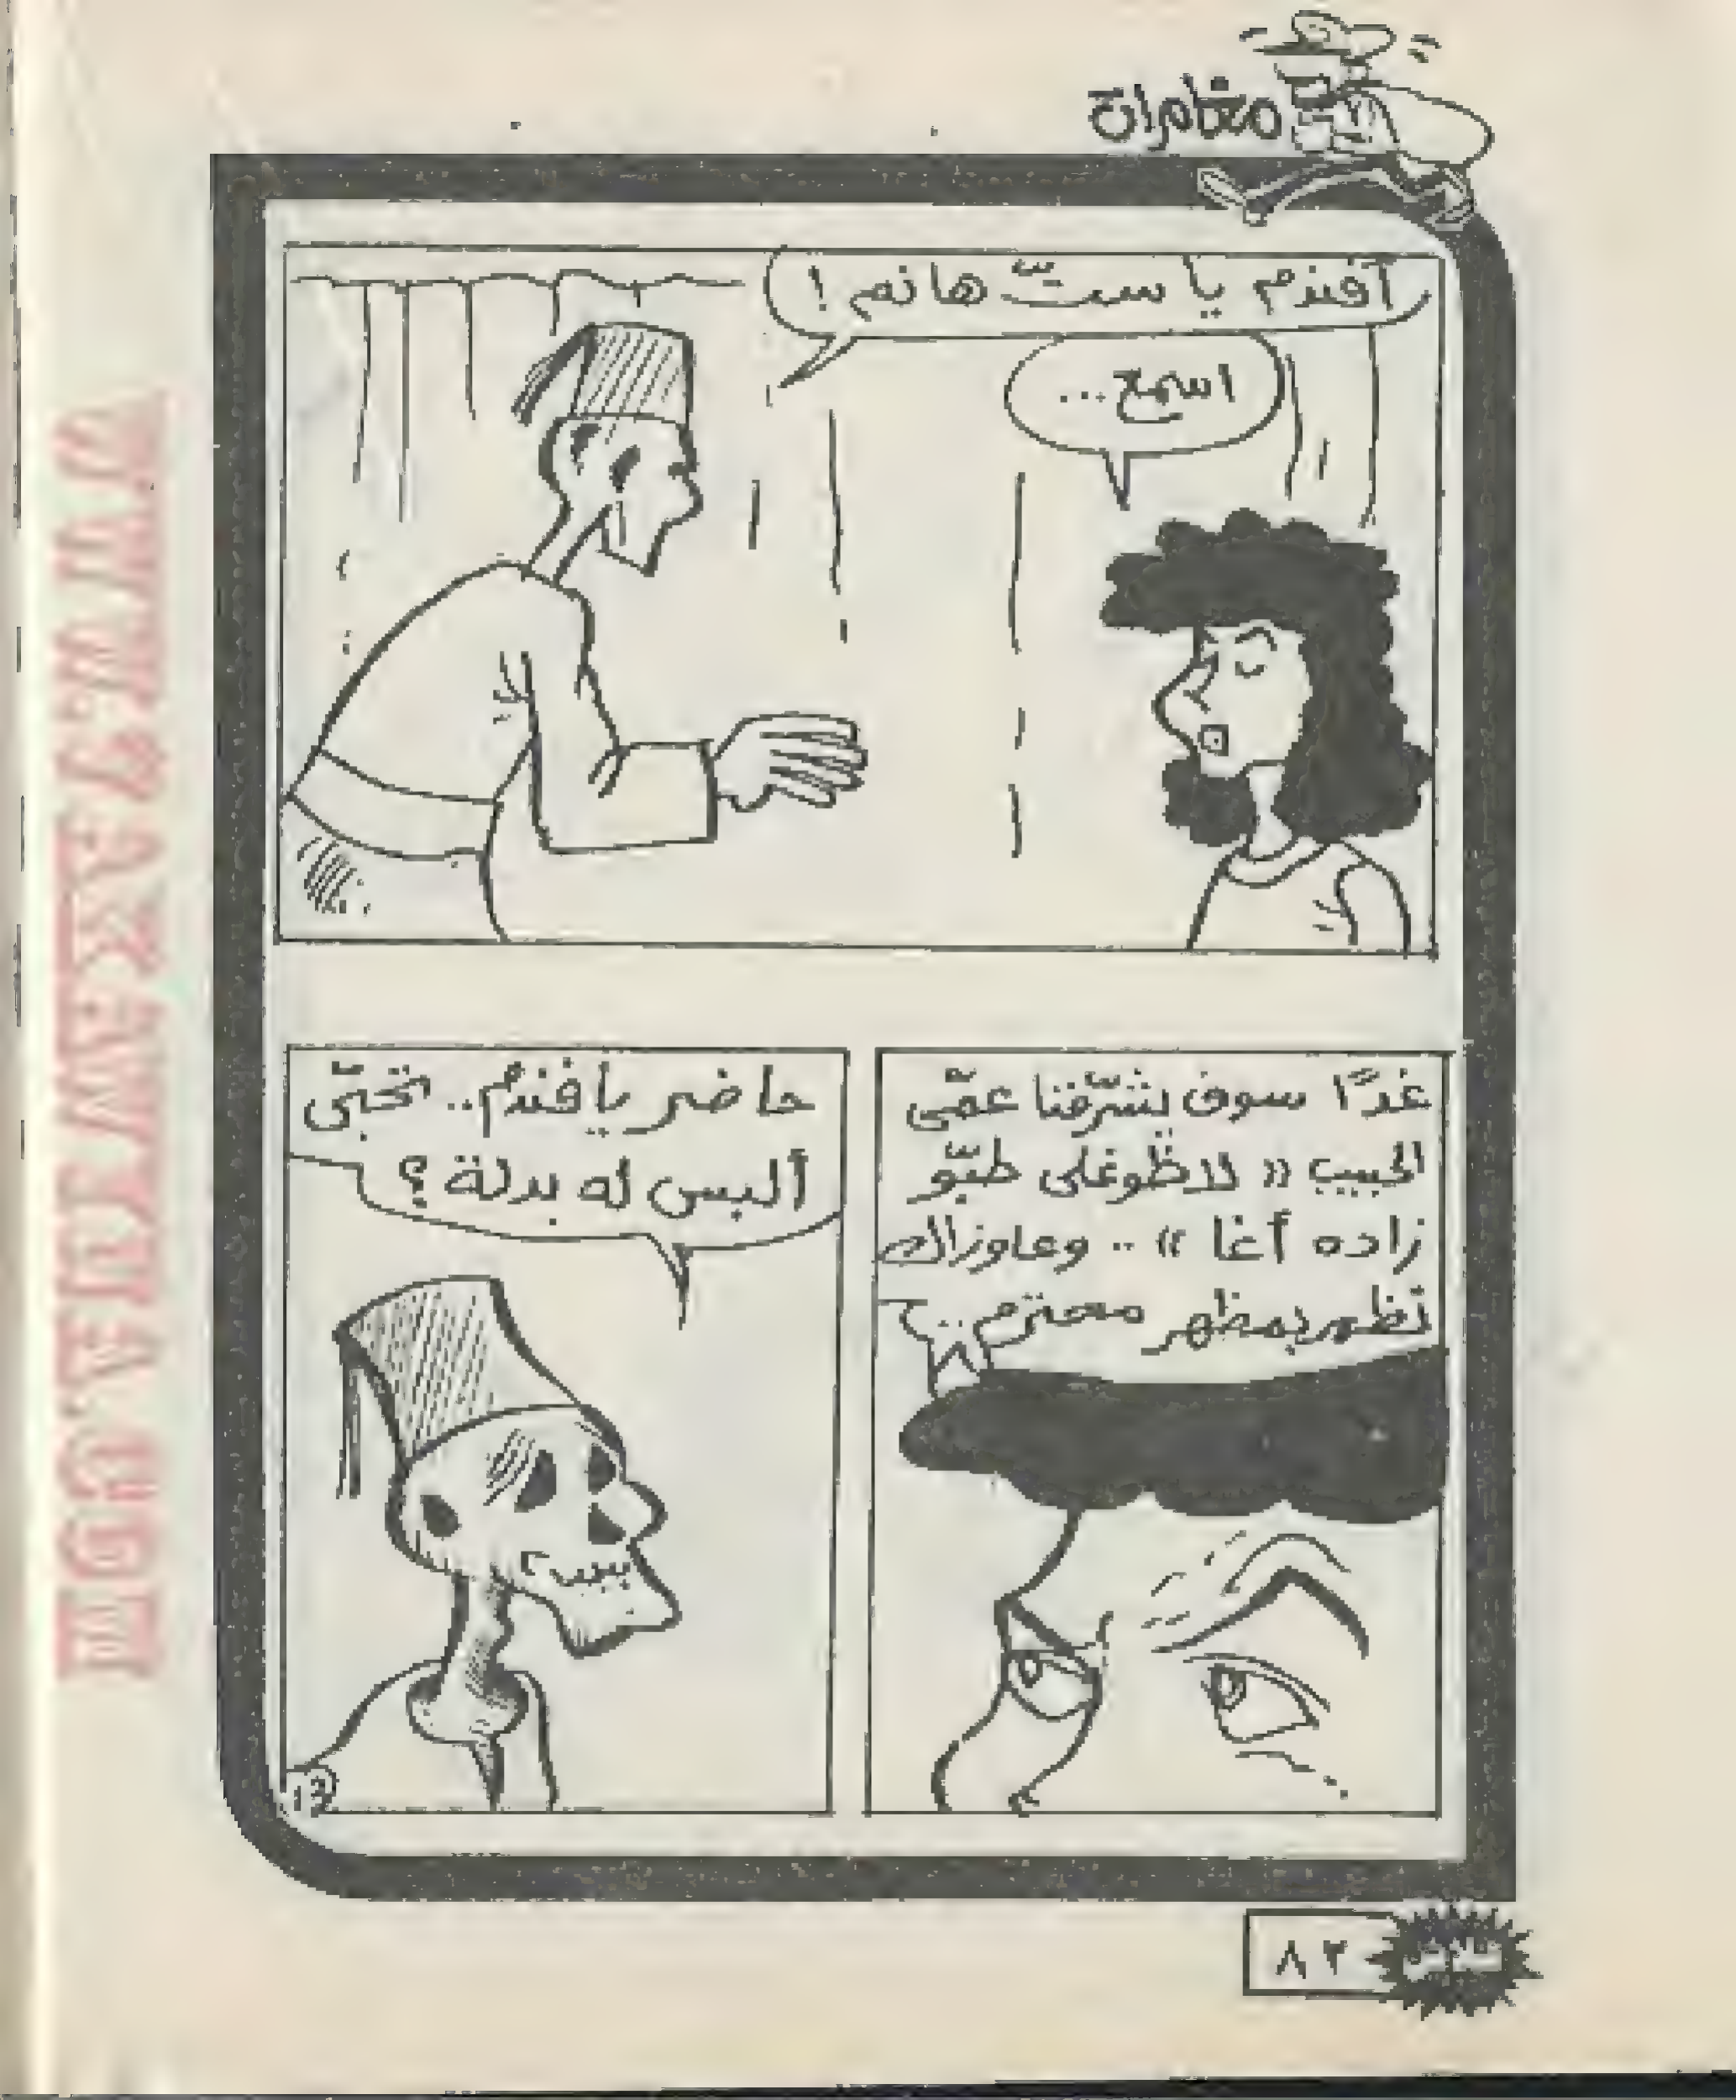 مغامرات
أفندم يا ستّ هانم!
اسمع...
غدًا سوف يشرّفنا عمّى
الحبيب «لاظوغلى طبّو
زاده أغا».. وعاوزاك
تظهر بمظهر محترم..
حاضر يا فندم.. تحبّى
ألبس له بدلة؟
١٣
فلاش
٨٢